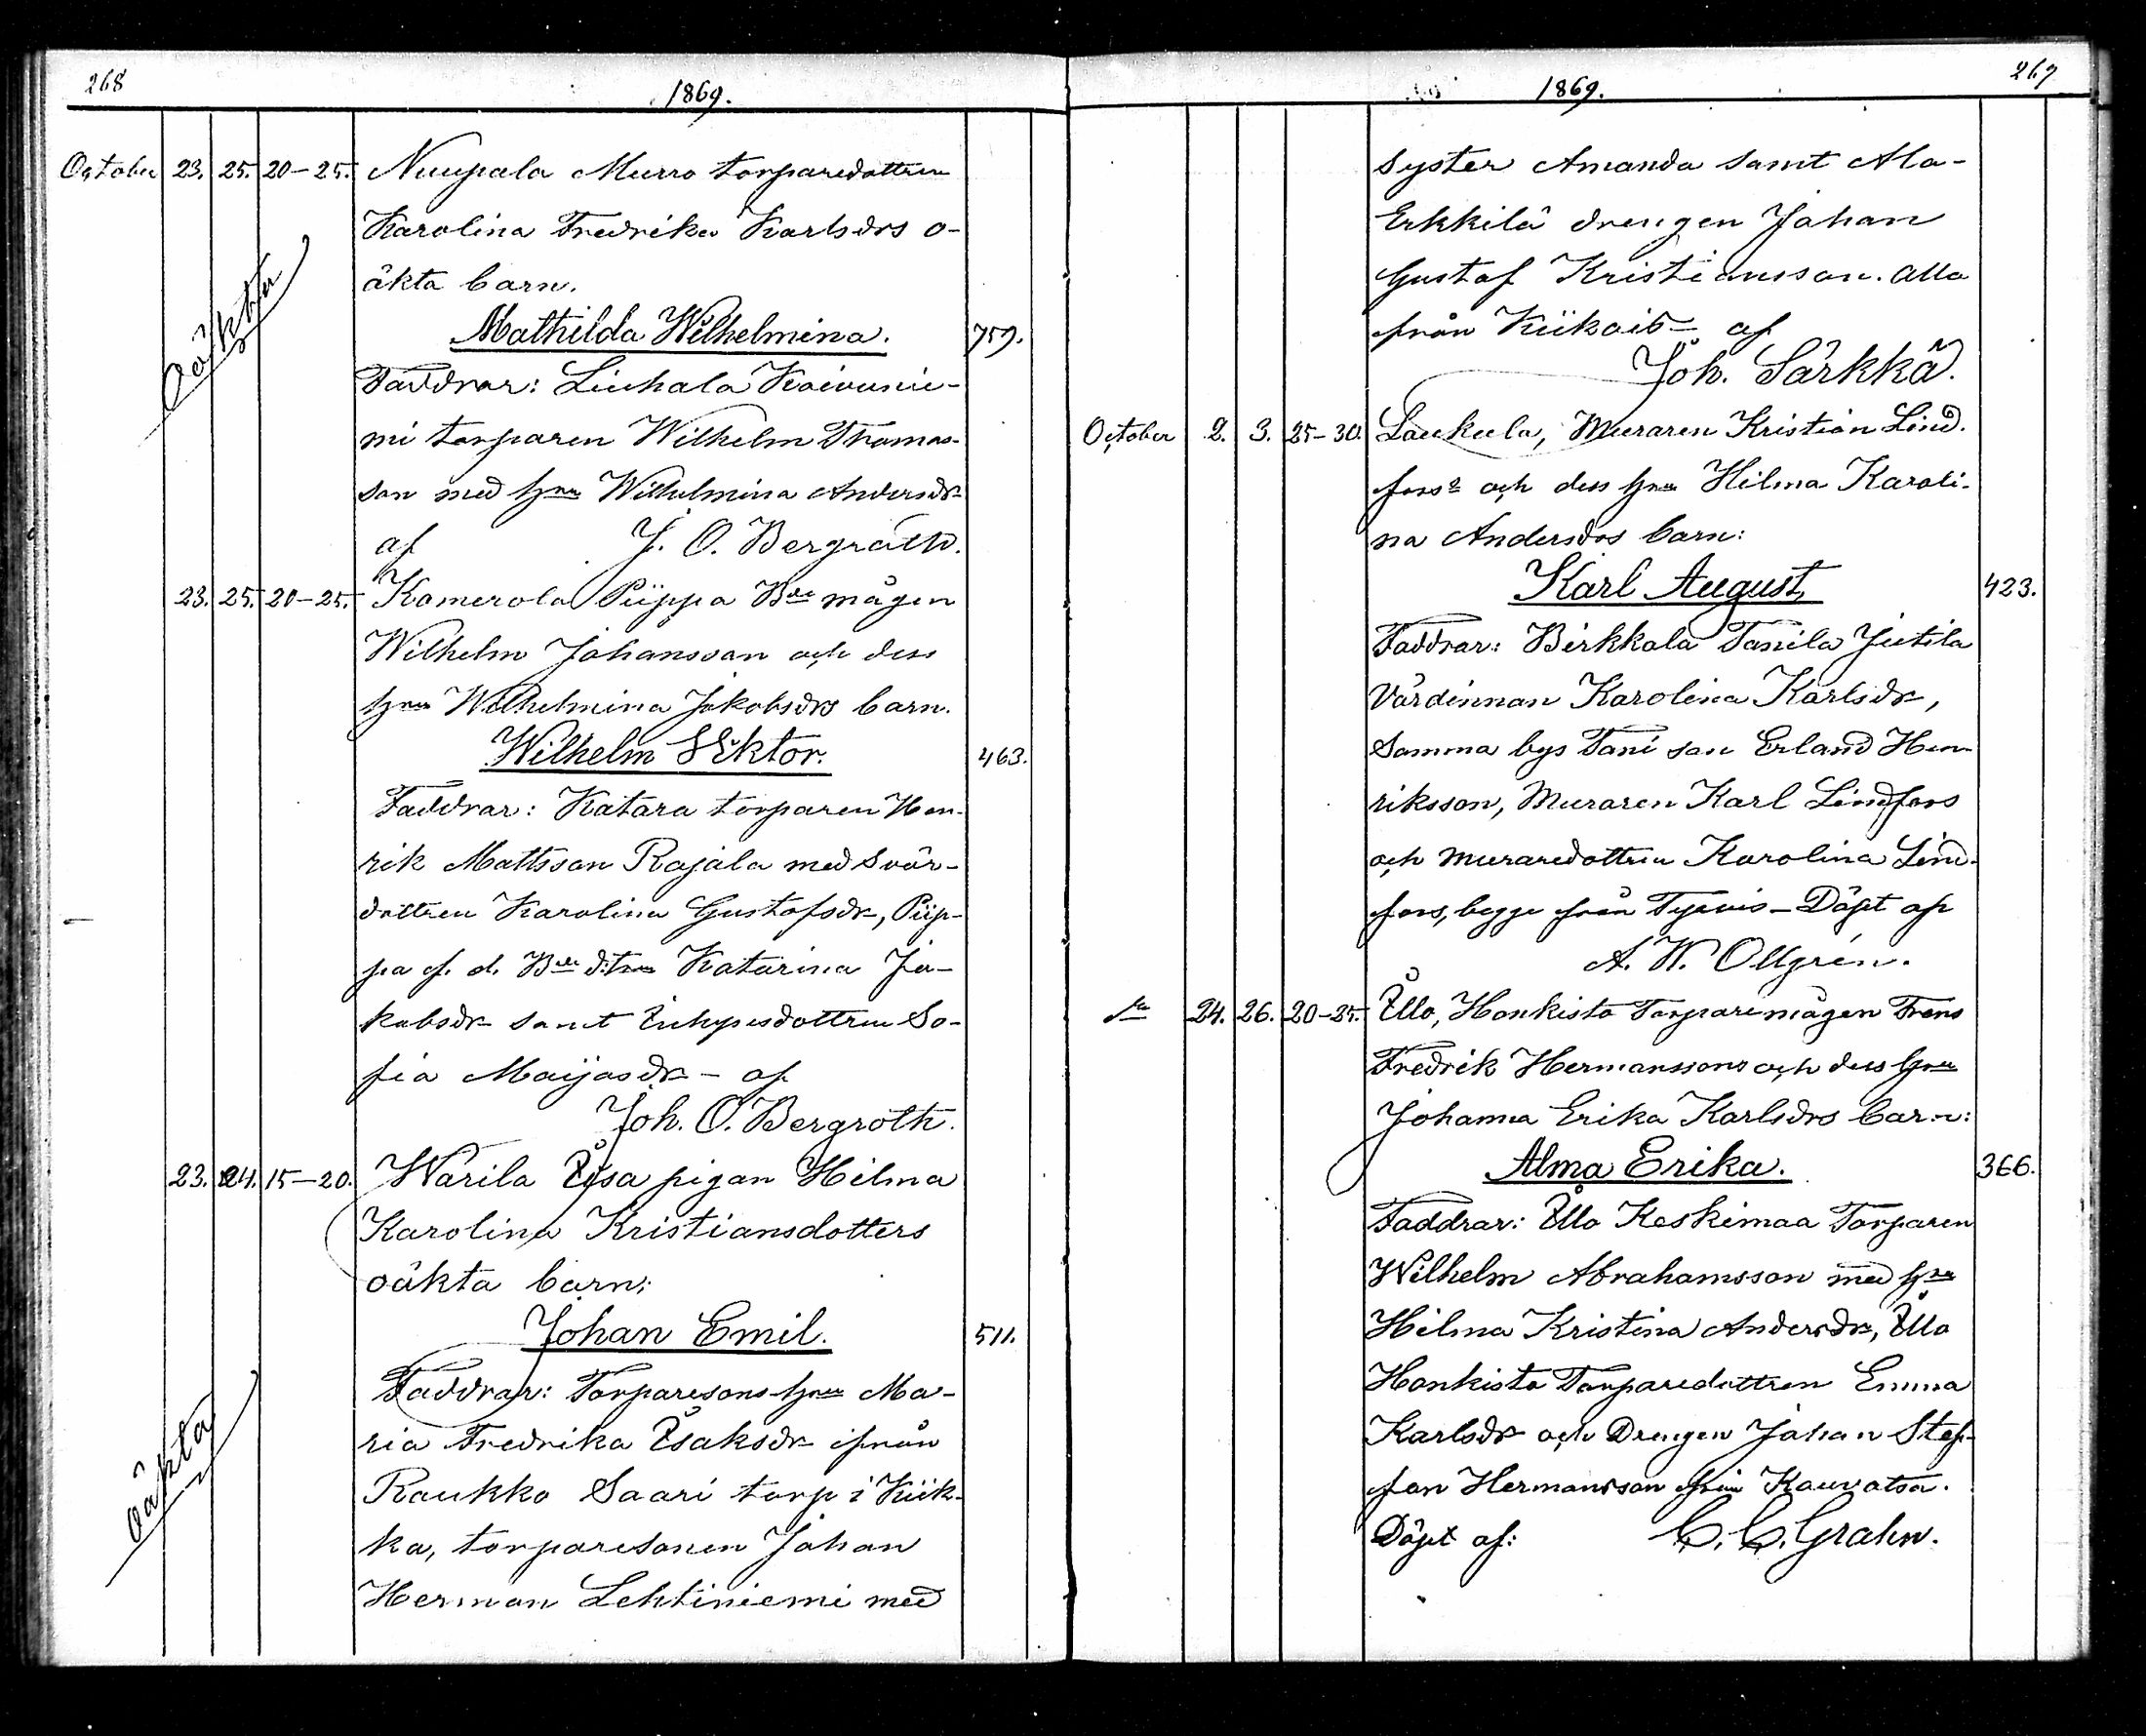 268
1869.
October 23. 25. 20-25. Nuupala Murro torparedottren
Karolina Fredrika Karlsdrs o-
äkta barn.
Oäkta
Mathilda Wilhelmina. 759.
Faddrar: Liuhala Koivunie-
mi torparen Wilhelm Thomas-
son med hru Wilhelmina Andersdr
af J. O. Bergroth.
23. 25. 20-25. Kamerola Piippa Bde mågen
Wilhelm Johansson och dess
hru Wilhelmina Jakobsdrs barn.
Wilhelm Wiktor. 463.
Faddrar: Katara torparen Hen-
rik Mattsson Rajala med svär-
dottren Karolina Gustafsdr, Piip-
pa f. d. Bde dtren Katarina Ja-
kobsdr samt Inhysesdottren So-
fia Maijasdr - af
Joh. O. Bergroth.
23. 24. 15-20. Warila Yysa pigan Hilma
Karolina Kristiansdotters
oäkta barn;
Johan Emil. 511.
Faddrar: Torparesons hru Ma-
ria Fredrika Isaksdr ifrån
Raukko Saari torp i Kiik-
ka, torparesonen Johan
oäkta
Herman Lehtiniemi med
267
1869.
syster Amanda samt Ala-
Erkkilä drengen Johan
Gustaf Kristiansson. alla
från Kiikois - af
Joh. Särkkä.
October 2. 3. 25-30. Laukula, Muraren Kristian Lind-
fors och dess hru Hilma Karoli-
na Andersdrs barn:
Karl August, 423.
Faddrar: Birkkala Tanila Jutila
Värdinnan Karolina Karlsdr,
Samma bys Tani son Erland Hen-
riksson, Muraren Karl Lindfors
och muraredottren Karolina Lind-
fors, begge från Tyrvis - Döpt af
A. W. Ollgrén.
24. 26. 20-25. Illo, Honkisto Torparemågen Frans
Fredrik Hermanssons och dess hru
Johanna Erika Karlsdrs barn:
Alma Erika. 366.
Faddrar: Illo Keskimaa Torparen
Wilhelm Abrahamsson med hru
Hilma Kristina Andersdr, Illo
Honkisto Torparedottren Emma
Karlsdr och Drengen Johan Stef-
fan Hermansson från Kauvatsa.
Döpt af: C. C. Grahn.